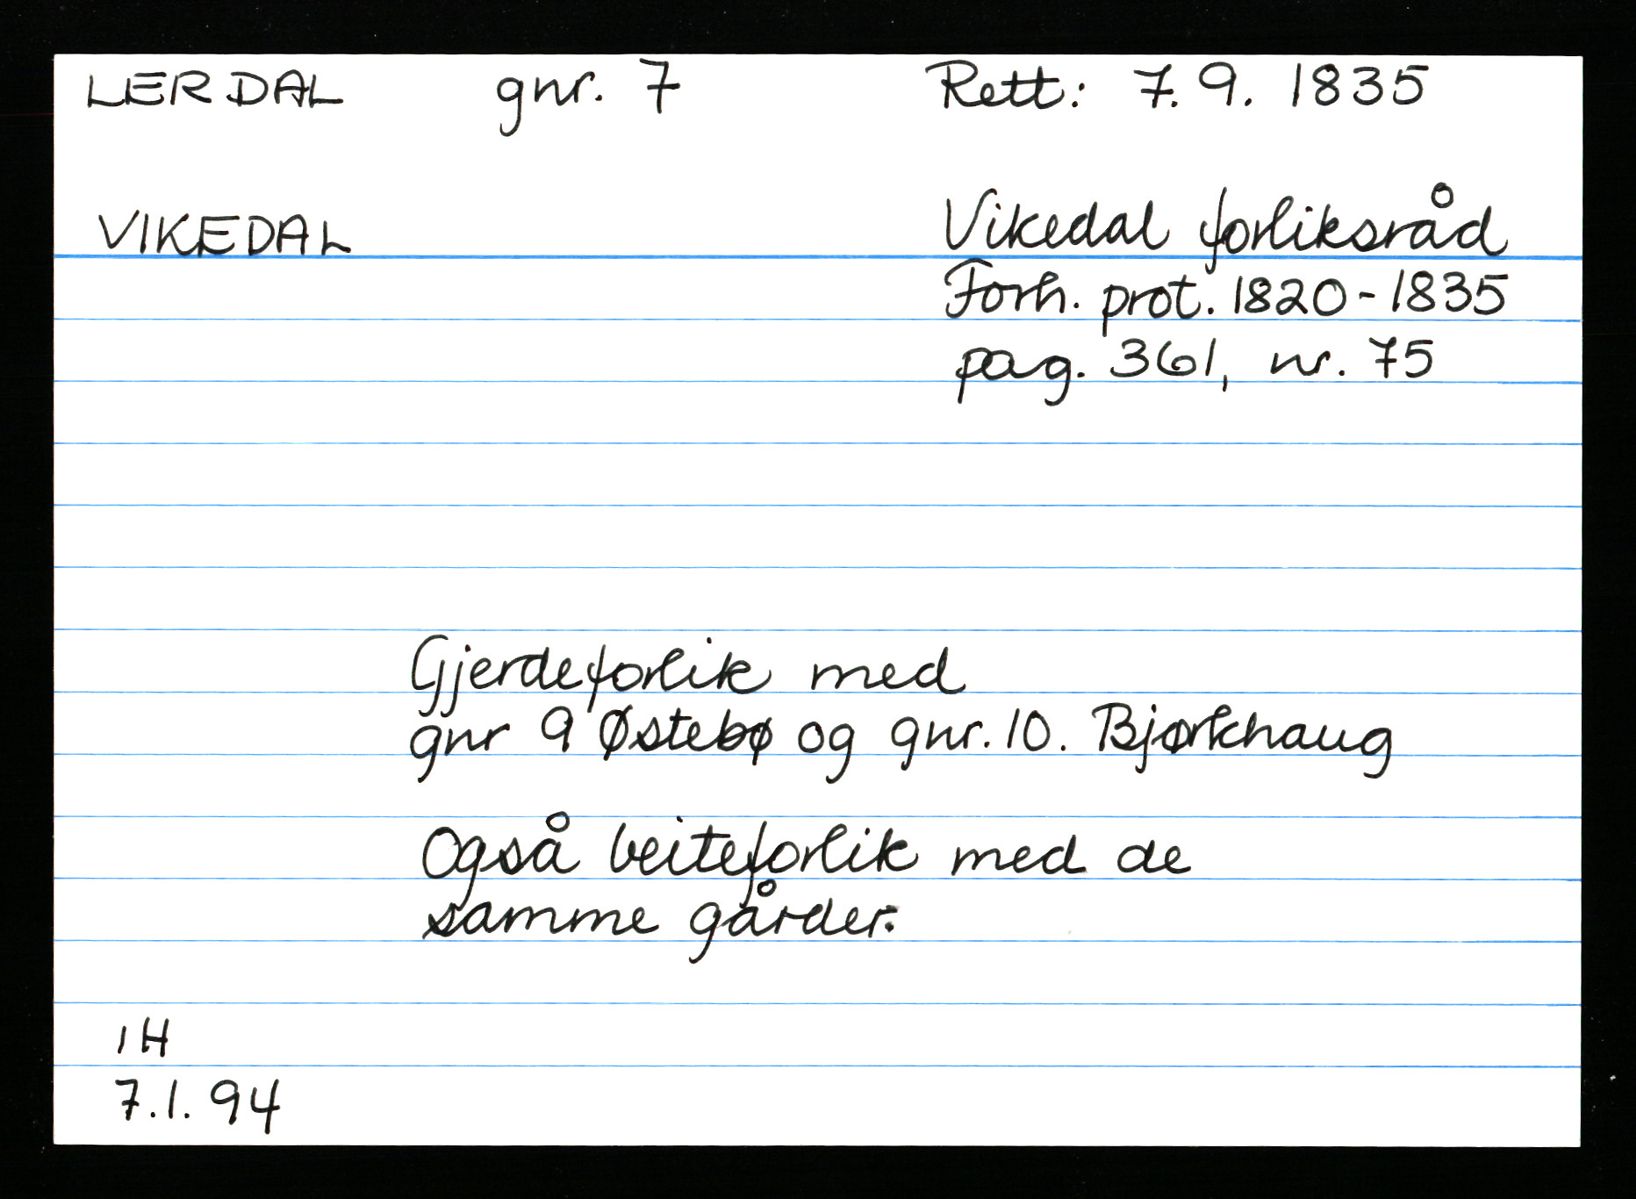 LERDAL gnr. 7 Rett: 7.9. 1835
VIKEDAL Vikedal forliksråd
Forh. prot. 1820-1835
pag. 361, nr. 75
Gjerdeforlik med
gnr 9 Østebø og gnr. 10. Bjørkhaug
Også beiteforlik med de
samme gårder.
IH
7.1.94